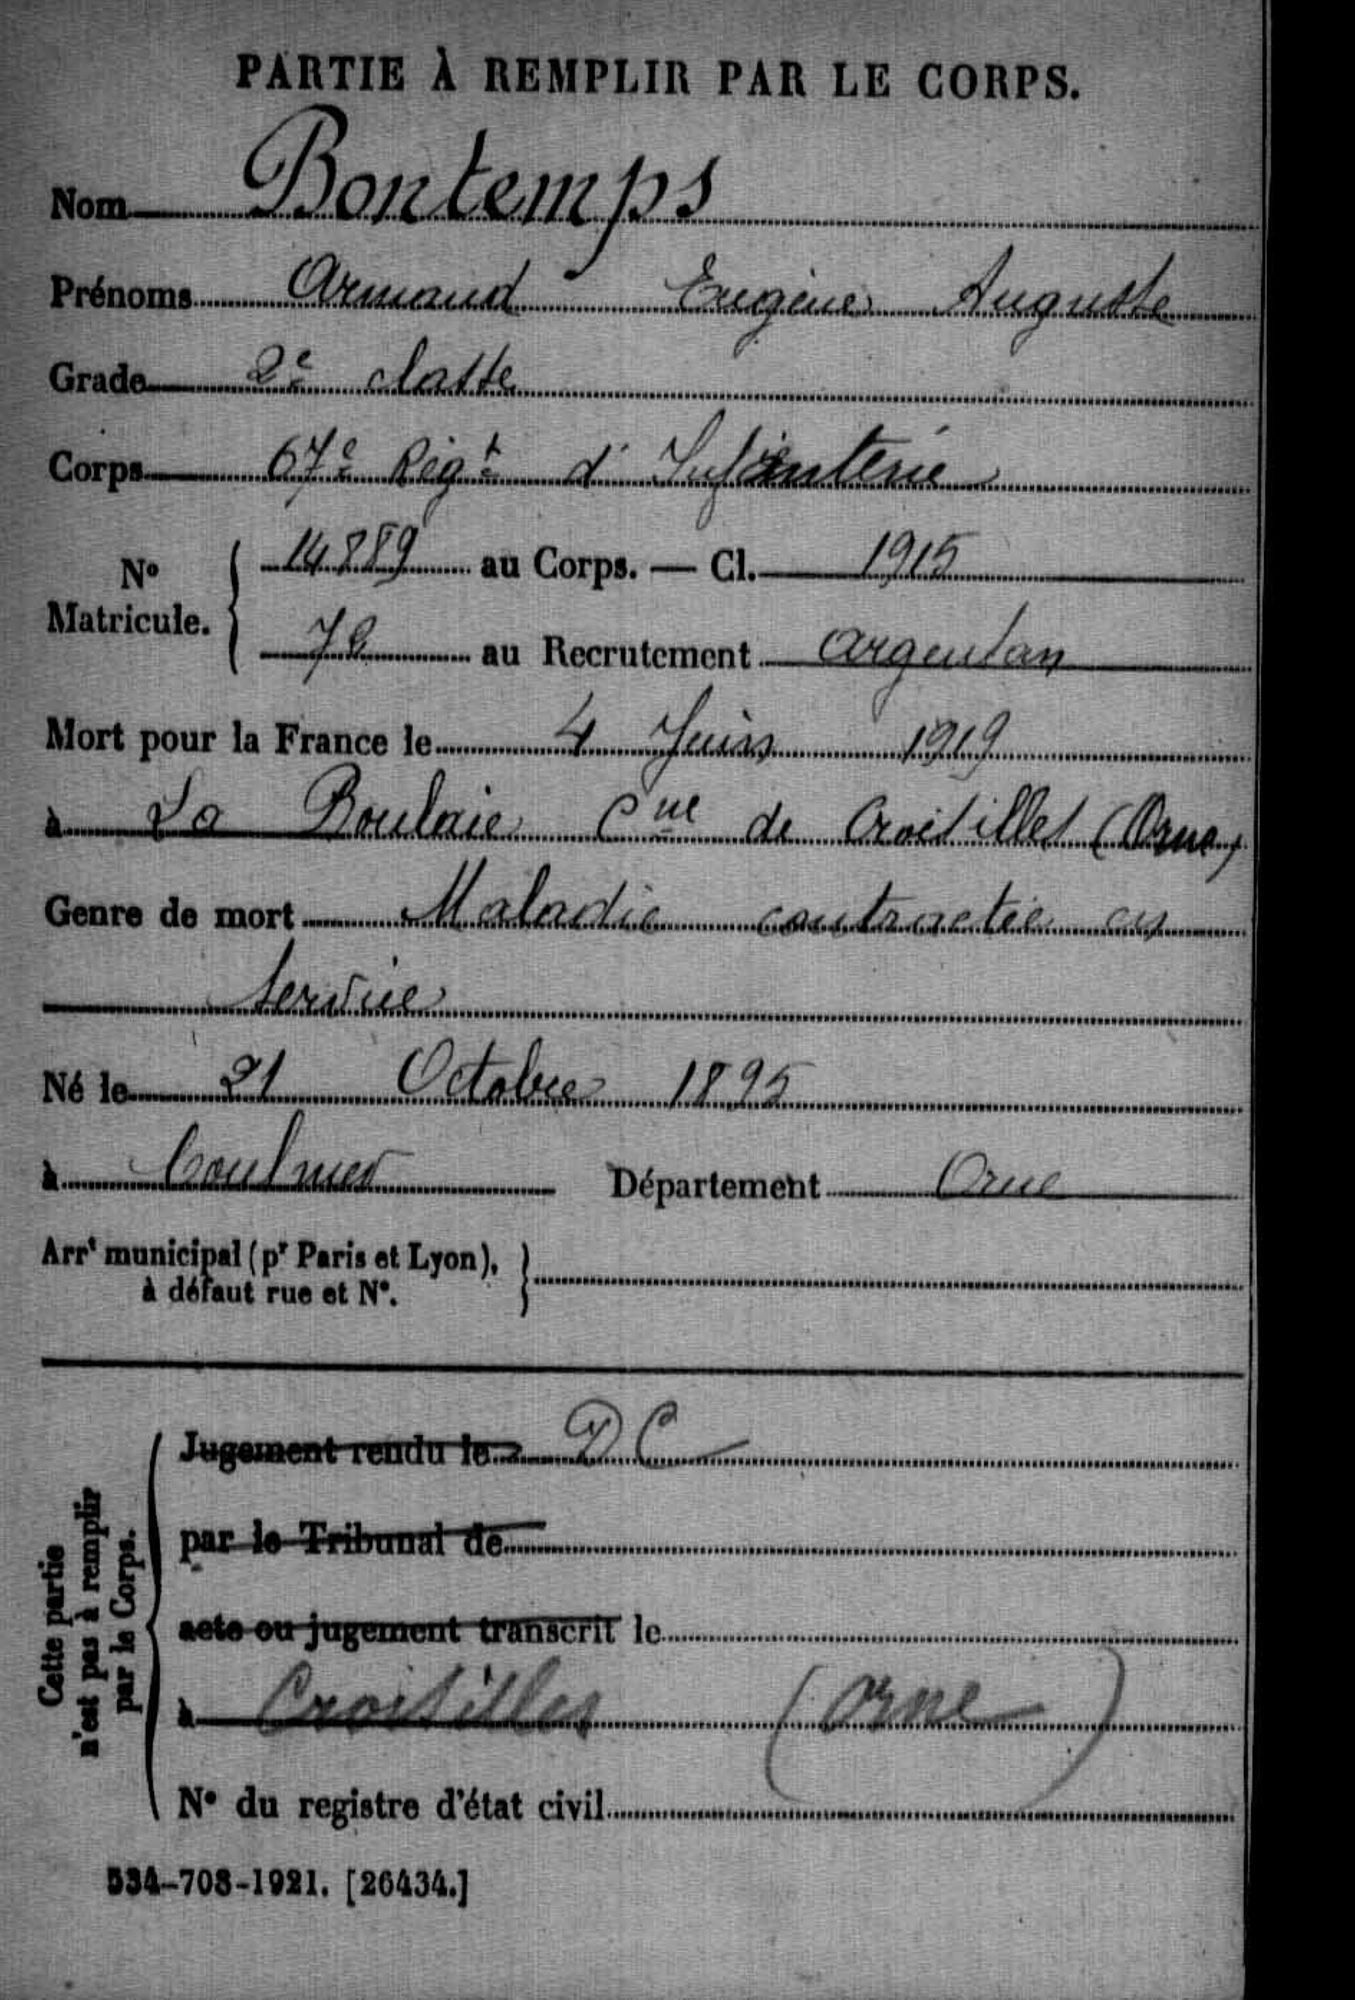 PARTIE À REMPLIR PAR LE CORPS.
Nom Bontemps
Prénoms Armand Eugène Auguste
Grade 2e classe
Corps 67e Régt d'Infanterie
No Matricule. { 14889 au Corps. — Cl. 1915
au Recrutement Argentan
Mort pour la France le 4 Juin 1919
à La Boulaie Cne de Croisilles (Orne)
Genre de mort Maladie contractée en
service
Né le 21 Octobre 1895
à Coulmer Département Orne
Arrt municipal (pr Paris et Lyon),
à défaut rue et No.
Cette partie
n'est pas à remplir
par le Corps.
Jugement rendu le DC
par le Tribunal de
acte ou jugement transcrit le
à Croisilles (Orne)
No du registre d'état civil
534-708-1921. [26434.]